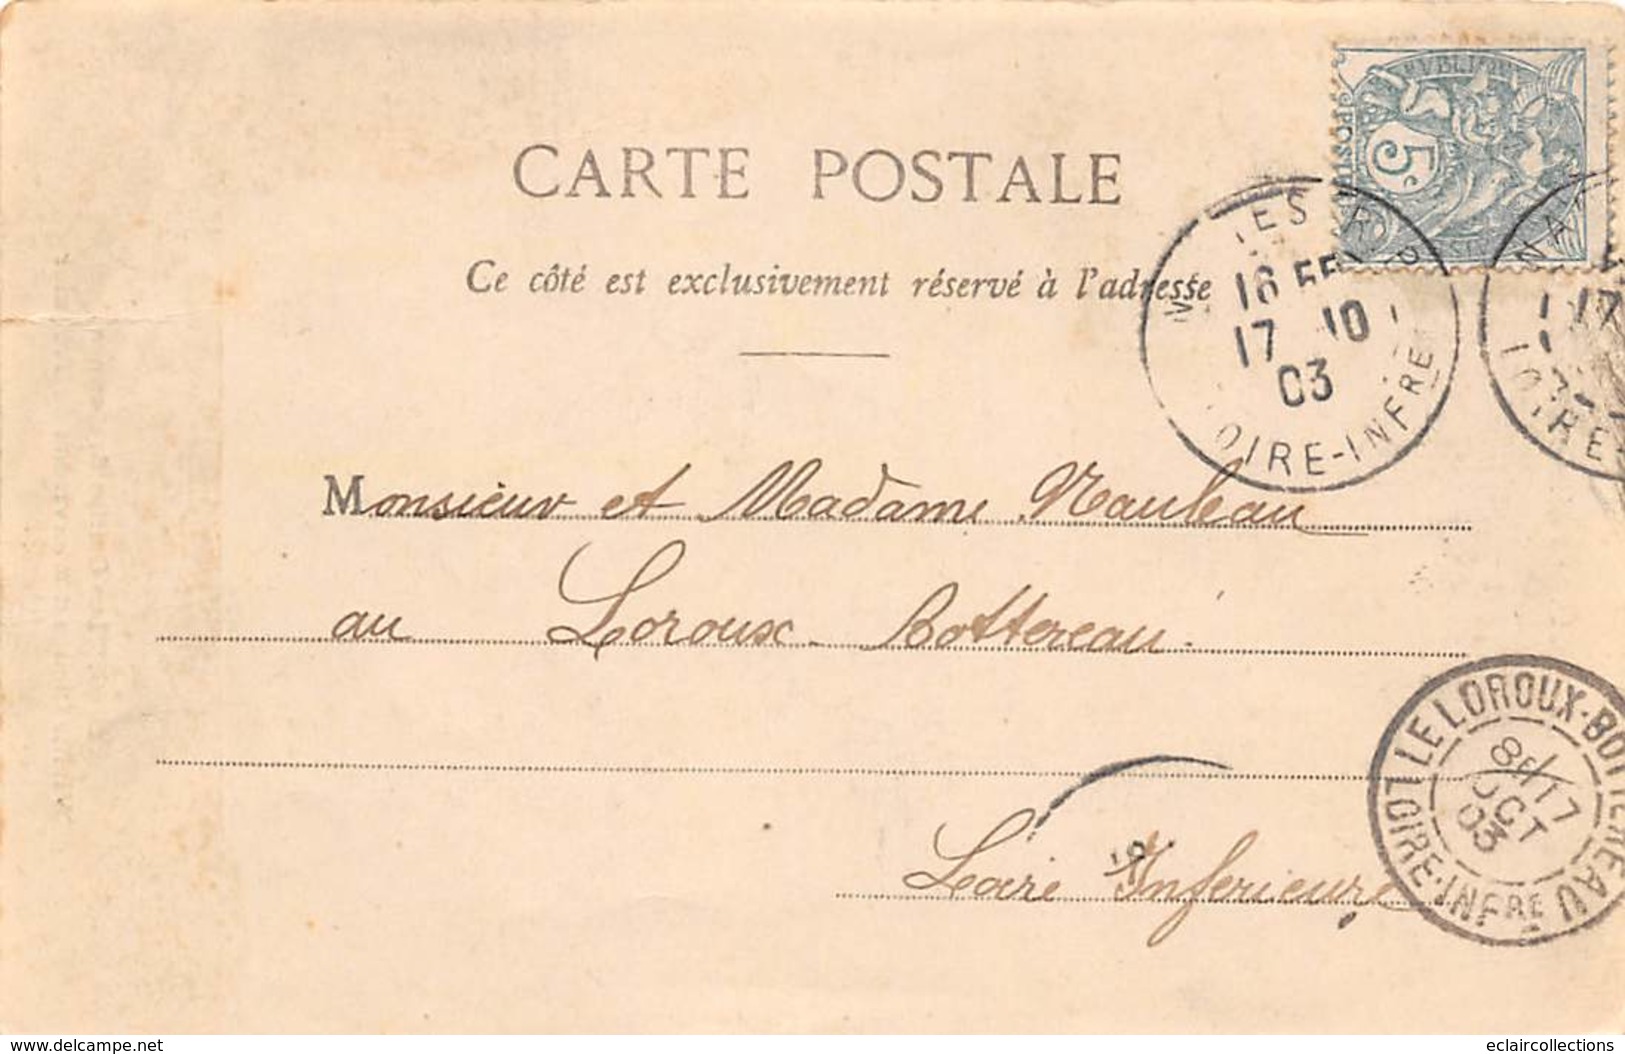 CARTE POSTALE
Ce côté est exclusivement réservé à l'adresse
5c
16 55
17 10
03
OIRE-INFRE
17
LOIRE-
Monsieur et Madame Nauleau
au Loroux-Bottereau
Loire Inferieure
LE LOROUX-BOTTEREAU
8E/17
OCT
03
LOIRE-INFRE
www.delcampe.net
eclaircollections